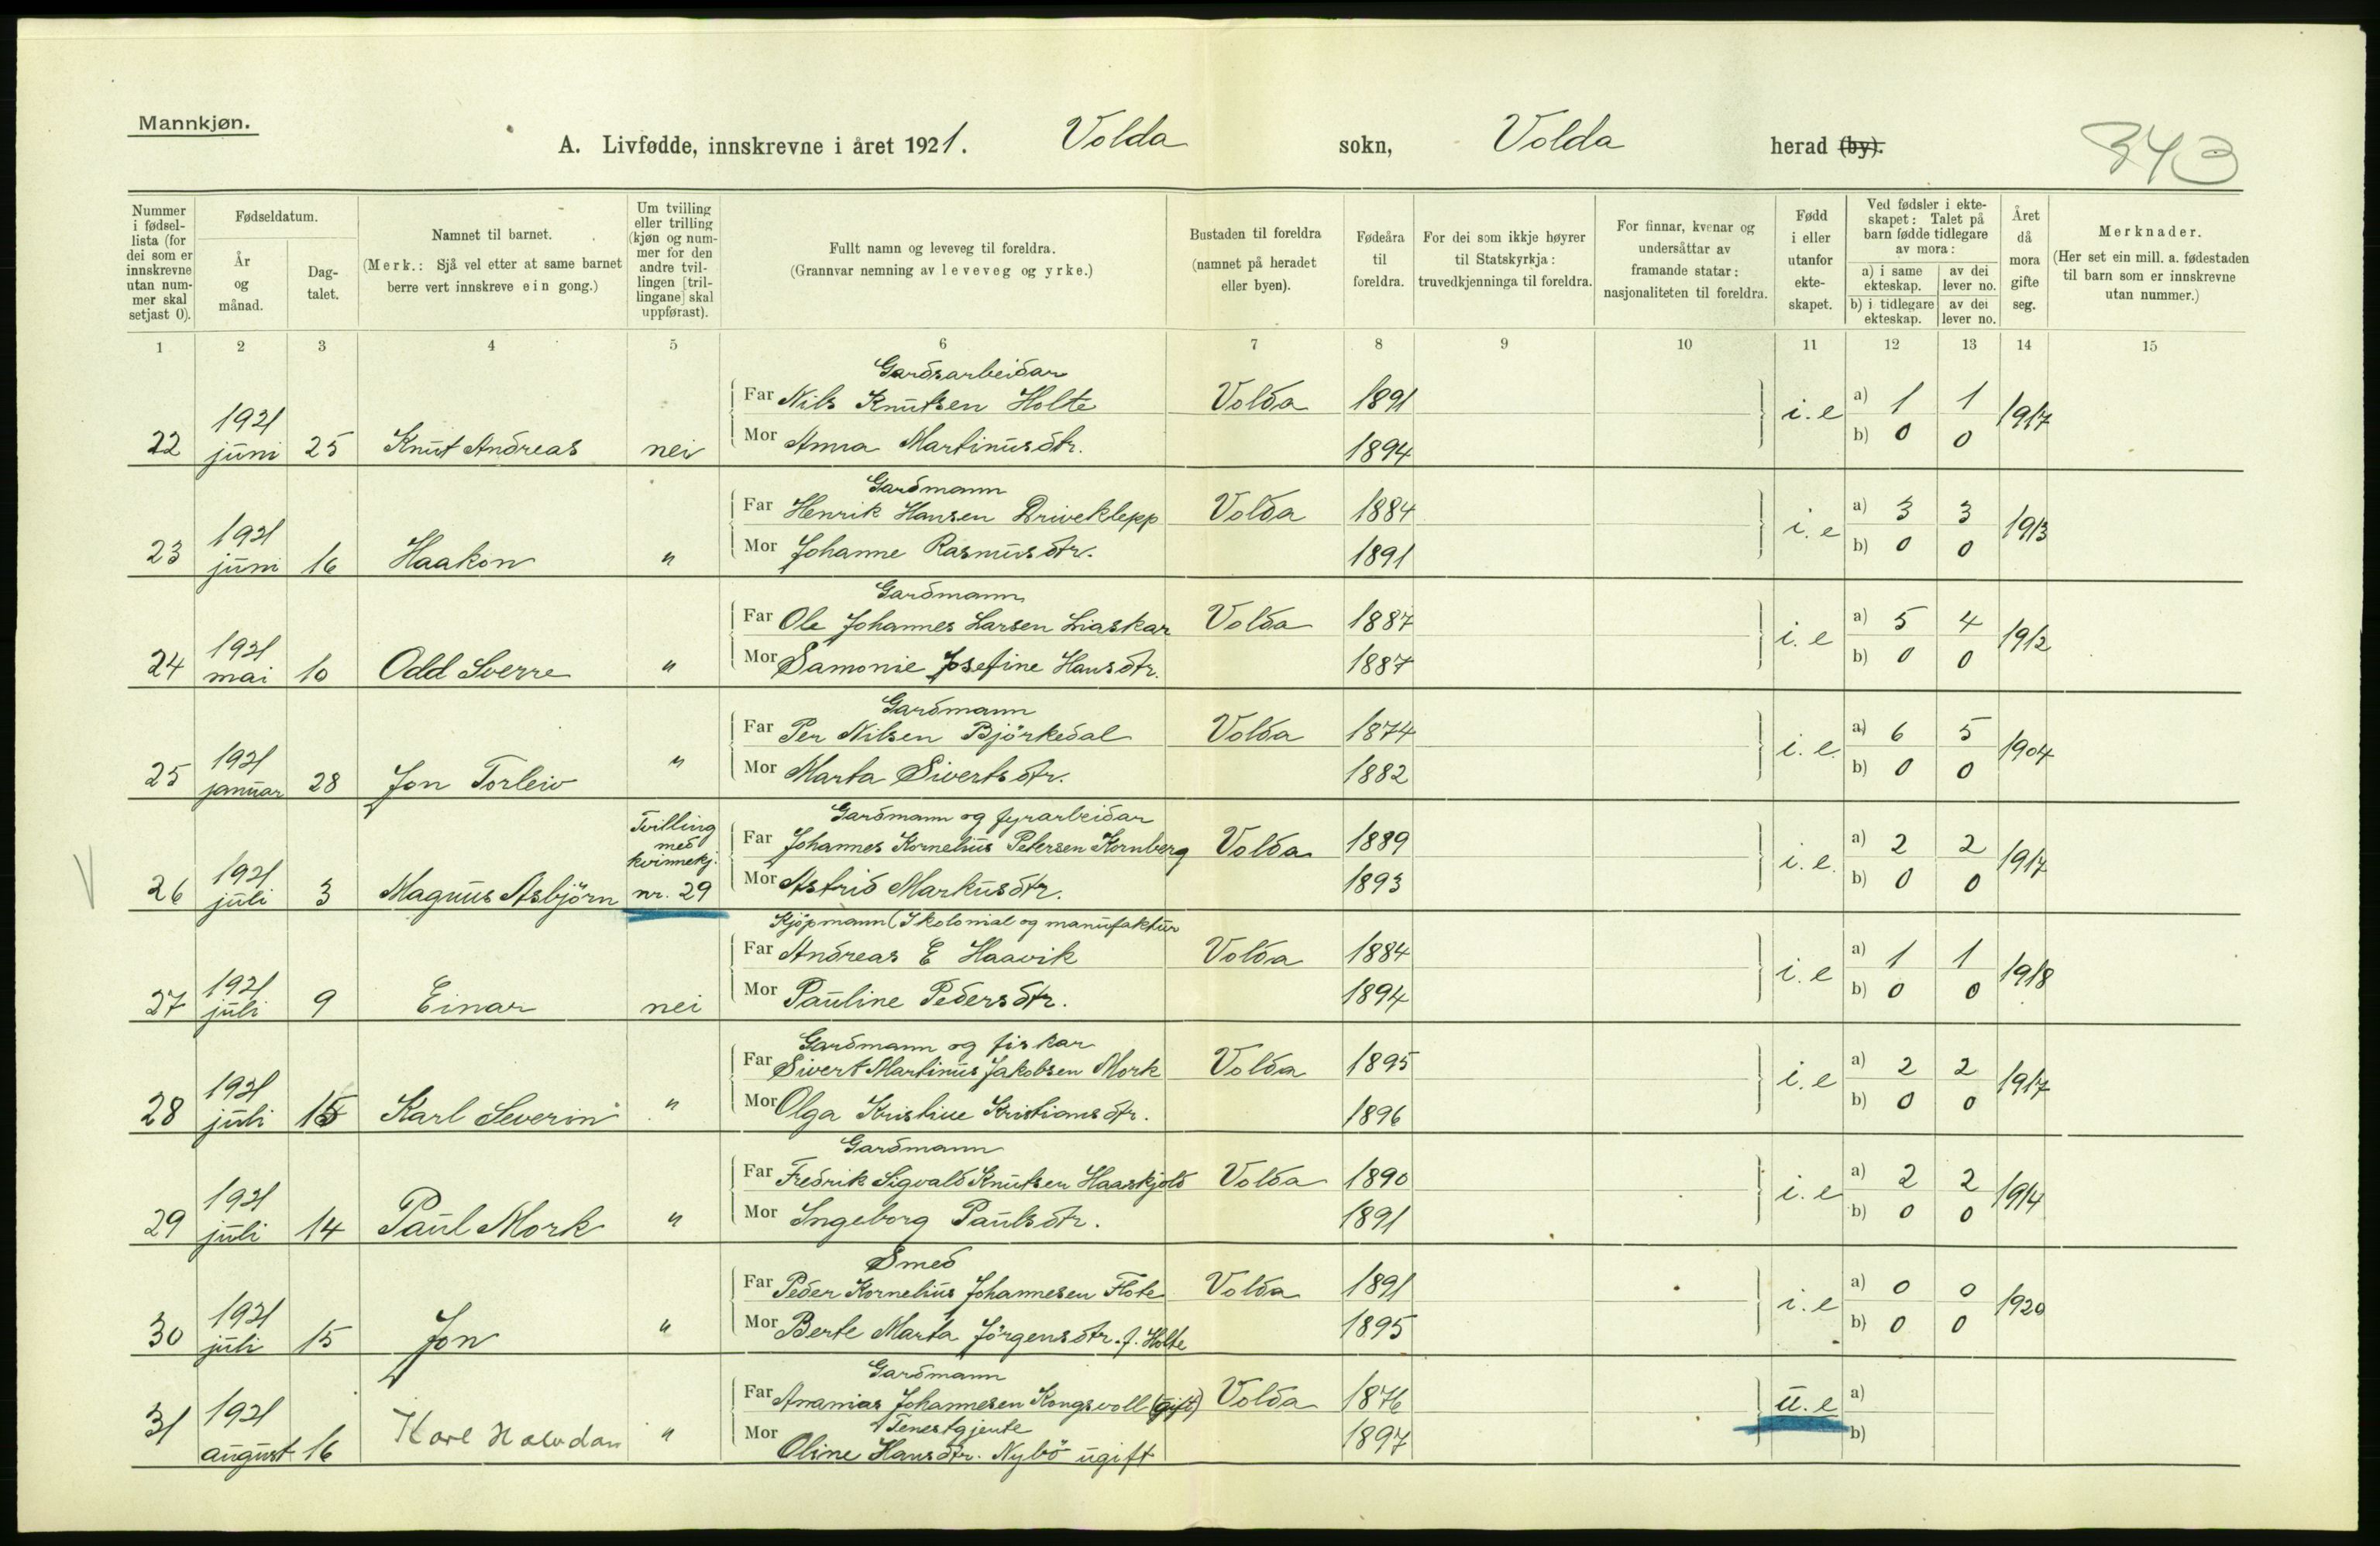 Mannkjøn.
A. Livfødde, innskrevne i året 1921. Volda sokn, Volda herad (by).
343
Nummer i fødsel-lista (for dei som er innskrevne utan num-mer skal setjast 0).
Fødseldatum.
År og månad.
Dag-talet.
Namnet til barnet.
(Merk.: Sjå vel etter at same barnet berre vert innskreve ein gong.)
Um tvilling eller trilling (kjøn og num-mer for den andre tvil-lingen [tril-lingane] skal uppførast).
Fullt namn og leveveg til foreldra.
(Grannvar nemning av leveveg og yrke.)
Bustaden til foreldra (namnet på heradet eller byen).
Fødeåra til foreldra.
For dei som ikkje høyrer til Statskyrkja: truvedkjenninga til foreldra.
For finnar, kvenar og undersåttar av framande statar: nasjonaliteten til foreldra.
Fødd i eller utanfor ekte-skapet.
Ved fødsler i ekte-skapet: Talet på barn fødde tidlegare av mora:
a) i same ekteskap. av dei lever no.
b) i tidlegare ekteskap. av dei lever no.
Året då mora gifte seg.
Merknader.
(Her set ein mill. a. fødestaden til barn som er innskrevne utan nummer.)
1 2 3 4 5 6 7 8 9 10 11 12 13 14 15
Gardsarbeidar
Far Nils Knutsen Holte Volda 1891 i.e a) 1 1 1917
22 1921 juni 25 Knut Andreas nei Mor Anna Martinusdtr. 1894 b) 0 0
Gardmann
Far Henrik Hansen Driveklepp Volda 1884 i.e a) 3 3 1913
23 1921 juni 16 Haakon " Mor Johanne Rasmusdtr. 1891 b) 0 0
Gardmann
Far Ole Johannes Larsen Liaskar Volda 1887 i.e a) 5 4 1912
24 1921 mai 10 Odd Sverre " Mor Samonie Josefine Hansdtr. 1887 b) 0 0
Gardmann
Far Per Nilsen Björkedal Volda 1874 i.e. a) 6 5 1904
25 1921 januar 28 Jon Torleiv " Mor Marta Sivertsdtr. 1882 b) 0 0
Gardmann og fyrarbeidar
Far Johannes Kornelius Petersen Kornberg Volda 1889 i.e. a) 2 2 1917
V 26 1921 juli 3 Magnus Asbjörn Tvilling med kvinnekj. nr. 29 Mor Astrid Markusdtr. 1893 b) 0 0
Kjöpmann (I kolonial og manufaktur
Far Andreas E Haavik Volda 1884 i.e a) 1 1 1918
27 1921 juli 9 Einar nei Mor Pauline Pedersdtr. 1894 b) 0 0
Gardmann og fiskar
Far Sivert Martinus Jakobsen Mork Volda 1895 i.e a) 2 2 1917
28 1921 juli 15 Karl Severin " Mor Olga Kristine Kristiansdtr. 1896 b) 0 0
Gardmann
Far Fredrik Sigvald Knutsen Haaskjold Volda 1890 i.e a) 2 2 1914
29 1921 juli 14 Paul Mork " Mor Ingeborg Paulsdtr. 1891 b) 0 0
Smed
Far Peder Kornelius Johannesen Flote Volda 1891 i.e a) 0 0 1920
30 1921 juli 15 Jon " Mor Berte Marta Jörgensdtr. f. Holte 1895 b) 0 0
Gardmann
Far Ananias Johannesen Kongsvoll (gift) Volda 1876 u.e a)
Tenestgjente
31 1921 august 16 Karl Halvdan " Mor Oline Hansdtr. Nybö ugift 1897 b)